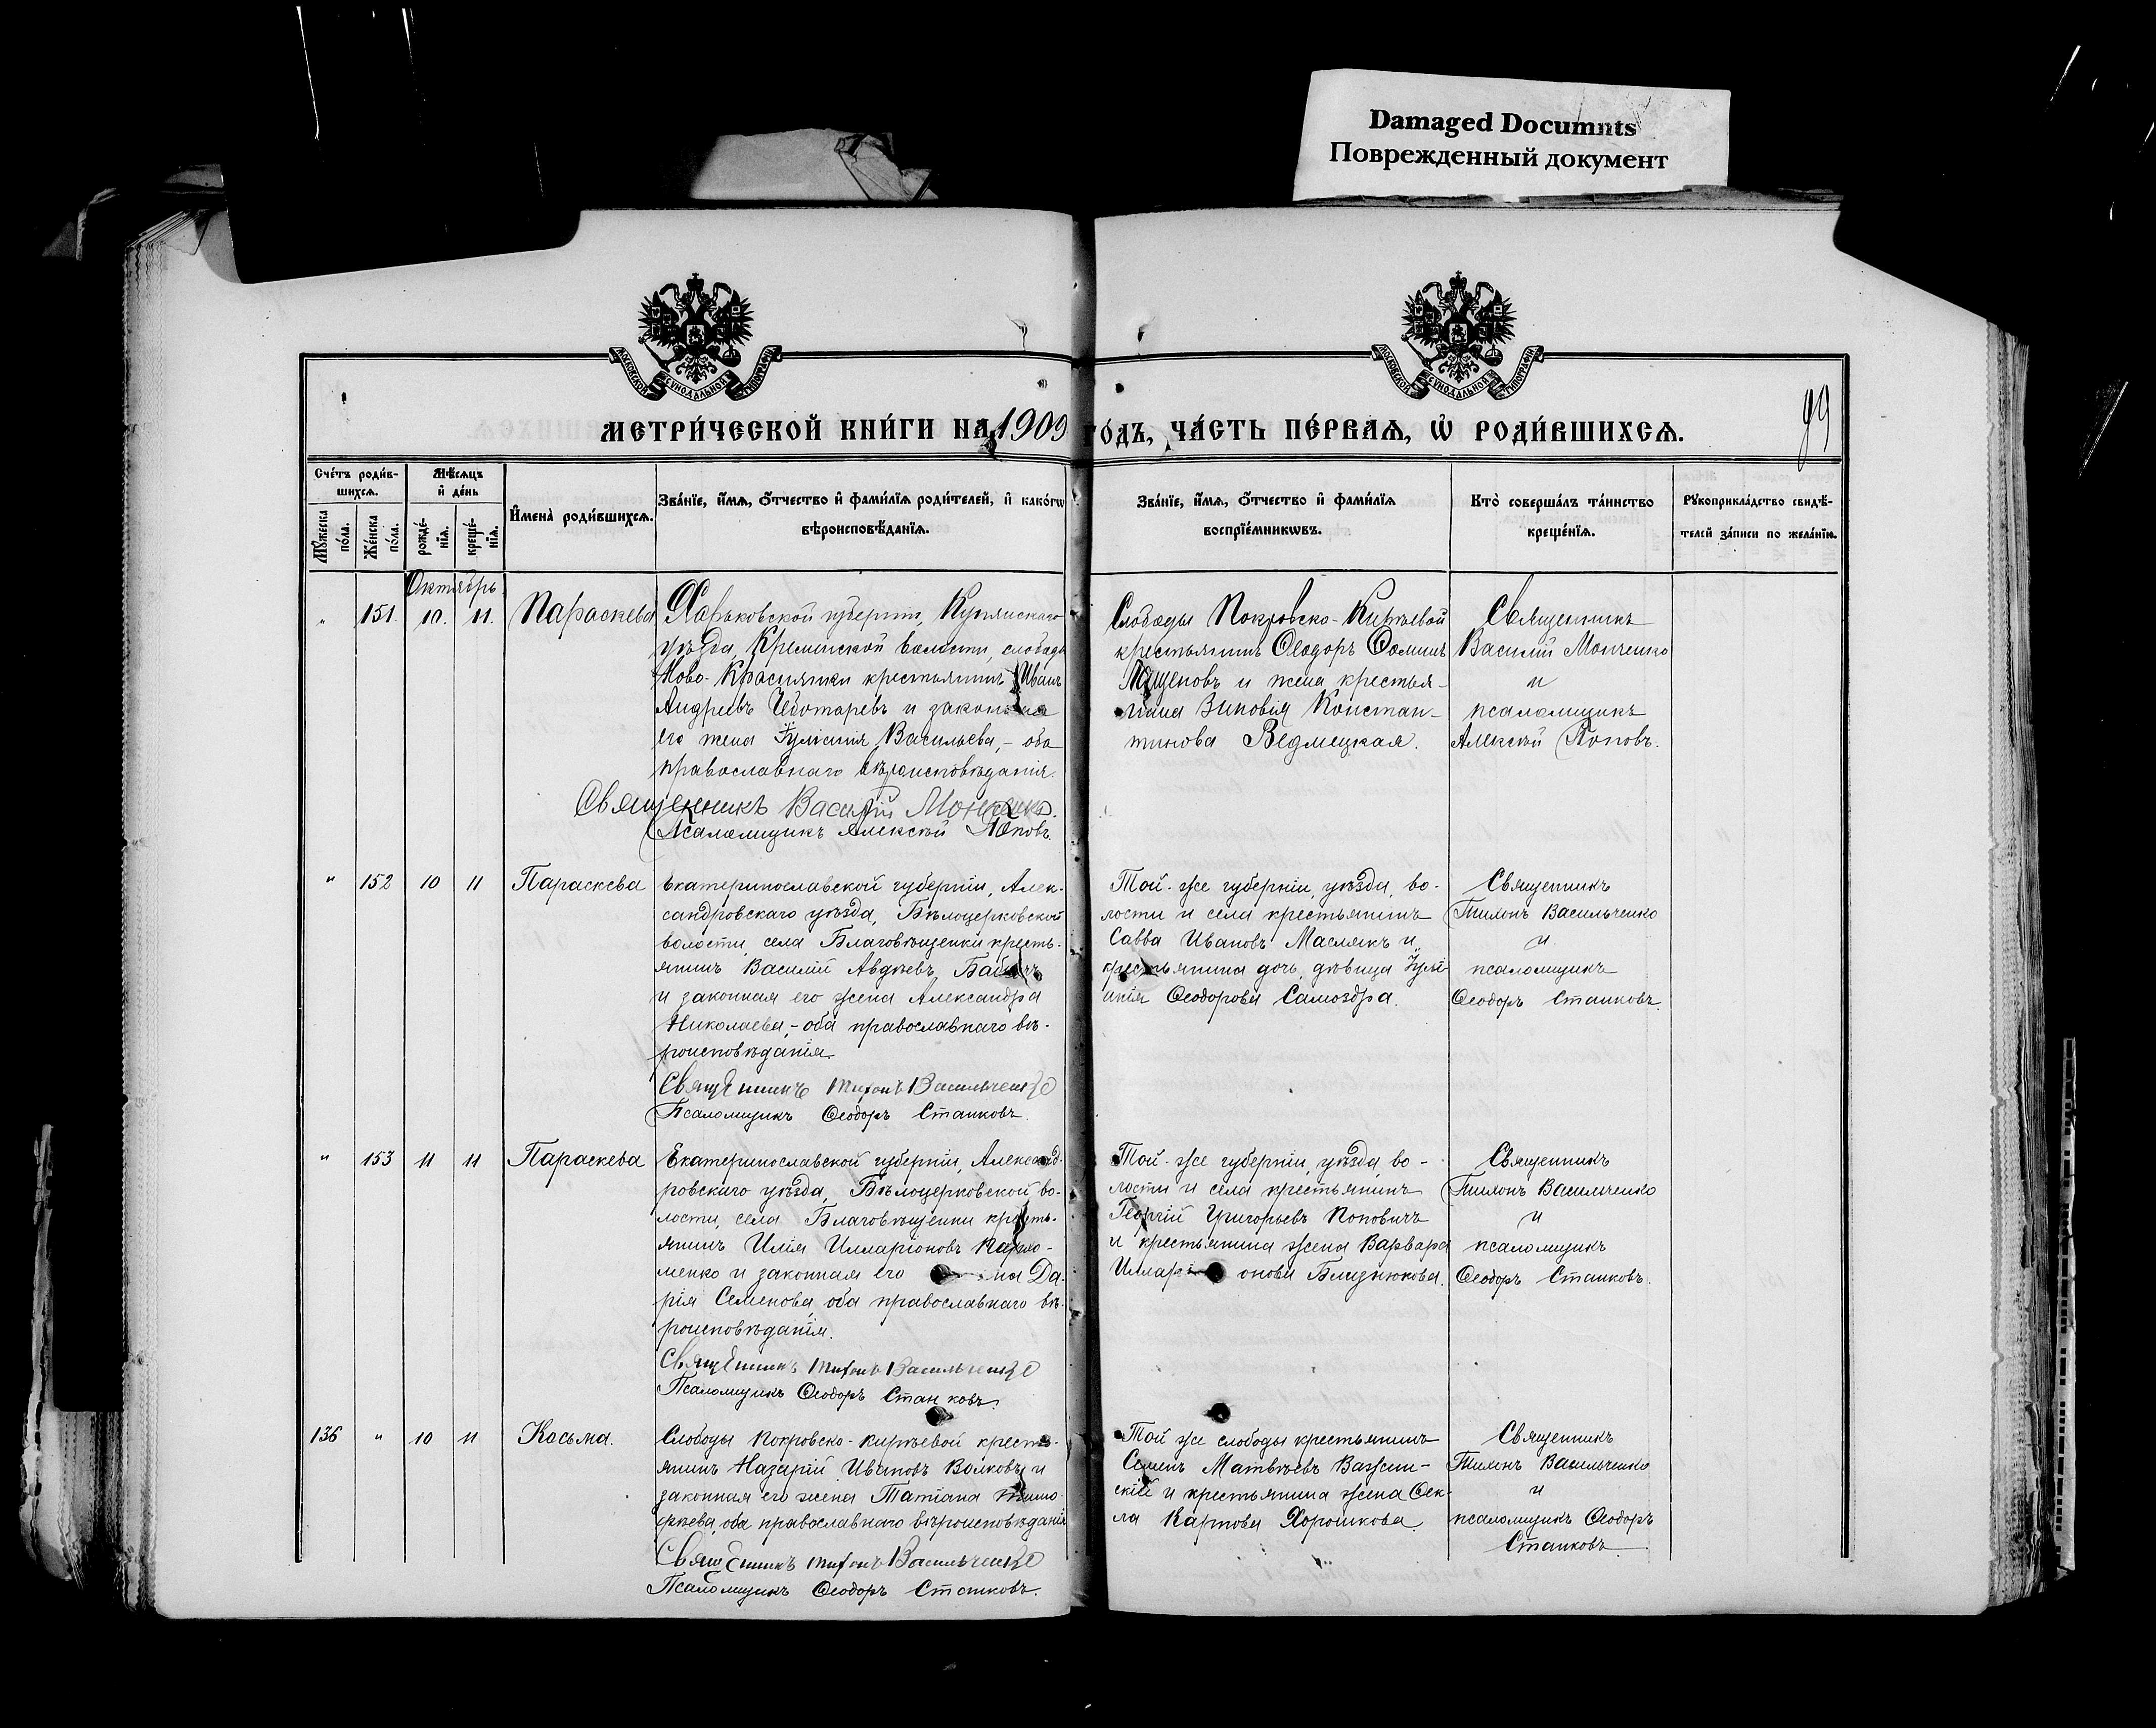 Damaged Documnts
Поврежденный документ
МОСКОВСКОЙ СѴНОДАЛЬНОЙ ТИПОГРАФІИ
МОСКОВСКОЙ СѴНОДАЛЬНОЙ ТИПОГРАФІИ
99
МЕТРИ́ЧЕСКОЙ КНИ́ГИ НА 1909 ГО́ДЪ, ЧА́СТЬ ПЕ́РВАѦ, Ѡ҆ РОДИ́ВШИХСѦ.
Сче́тъ роди́в-
шихсѧ.
Мꙋ́жеска по́ла.
Же́нска по́ла.
Мѣ́сѧцъ
и҆ де́нь
рожде́-
нїѧ.
креще́-
нїѧ.
И҆мена̀ роди́вшихсѧ.
Зва́нїе, и҆́мѧ, ѻ҆́тчество и҆ фами́лїѧ роди́телей, и҆ како́гѡ
вѣроисповѣ́данїѧ.
Зва́нїе, и҆́мѧ, ѻ҆́тчество и҆ фами́лїѧ
воспрїе́мникѡвъ.
Кто̀ соверша́лъ та́инство
креще́нїѧ.
Рꙋкоприкла́дство свидѣ́-
телей за́писи по жела́нїю.
Октябрь
" 151. 10. 11. Параскева
Харьковской губерніи, Купянскаго
уѣзда, Кременской волости, слободы
Ново-Краснянки крестьянинъ Иванъ
Андреевъ Чеботаревъ и законная
его жена Іуліанія Васильева, - оба
православнаго вѣроисповѣданія.
Священникъ Василій Монченко.
Псаломщикъ Алексѣй Поповъ.
Слободы Покровско-Кирѣевой
крестьянинъ Ѳеодоръ Ѳоминъ
и жена крестья-
нина Зиновія Констан-
тинова Ведмецкая.
Священникъ
Василій Монченко
и
псаломщикъ
Алексѣй Поповъ.
" 152 10 11 Параскева
Екатеринославской губерніи, Алек-
сандровскаго уѣзда, Бѣлоцерковской
волости, села Благовѣщенки кресть-
янинъ Василій Авдѣевъ
и законная его жена Александра
Николаева, - оба православнаго вѣ-
роисповѣданія.
Священникъ Тихонъ Васильченко
Псаломщикъ Ѳеодоръ Станковъ.
Той-же губерніи, уѣзда, во-
лости и села крестьянинъ
Савва Ивановъ Маслякъ и
крестьянина дочь, дѣвица Іулі-
анія Ѳеодорова Самоздра.
Священникъ
Тихонъ Васильченко
и
псаломщикъ
Ѳеодоръ Станковъ.
" 153 11 11 Параскева
Екатеринославской губерніи, Александ-
ровскаго уѣзда, Бѣлоцерковской во-
лости, села Благовѣщенки кресть-
янинъ Илія Илларіоновъ
менко и законная его на Да-
рія Семенова, оба православнаго вѣ-
роисповѣданія.
Священникъ Тихонъ Васильченко
Псаломщикъ Ѳеодоръ Станковъ.
Той-же губерніи, уѣзда, во-
лости и села крестьянинъ
Георгій Григорьевъ Поповичъ
и крестьянина жена Варвара
Иллари онова Близнюкова.
Священникъ
Тихонъ Васильченко
и
псаломщикъ
Ѳеодоръ Станковъ.
136 " 10 11 Косьма.
Слободы Покровско-Кирѣевой кресть-
янинъ Назарій Ивановъ Волковъ и
законная его жена Татіана Тимо-
ѳеева, оба православнаго вѣроисповѣданія
Священникъ Тихонъ Васильченко
Псаломщикъ Ѳеодоръ Станковъ.
Той же слободы крестьянинъ
Семенъ Матвѣевъ Важин-
скій и крестьянина жена Ѳек-
ла Карпова Хорошкова.
Священникъ
Тихонъ Васильченко
и
псаломщикъ Ѳеодоръ
Станковъ.